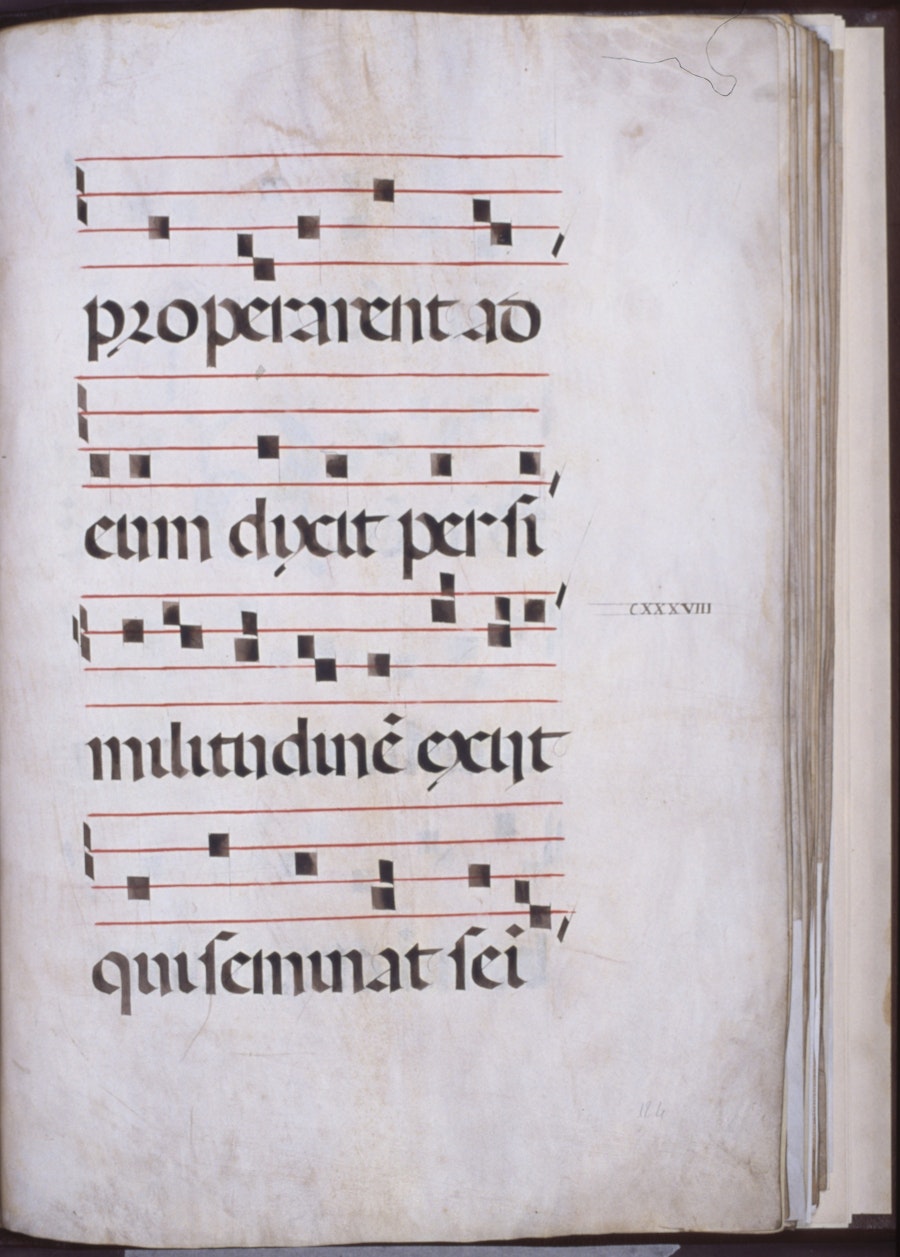 properarent ad
eum dixit per si
militudinē exijt
CXXXVIII
qui seminat sei
124